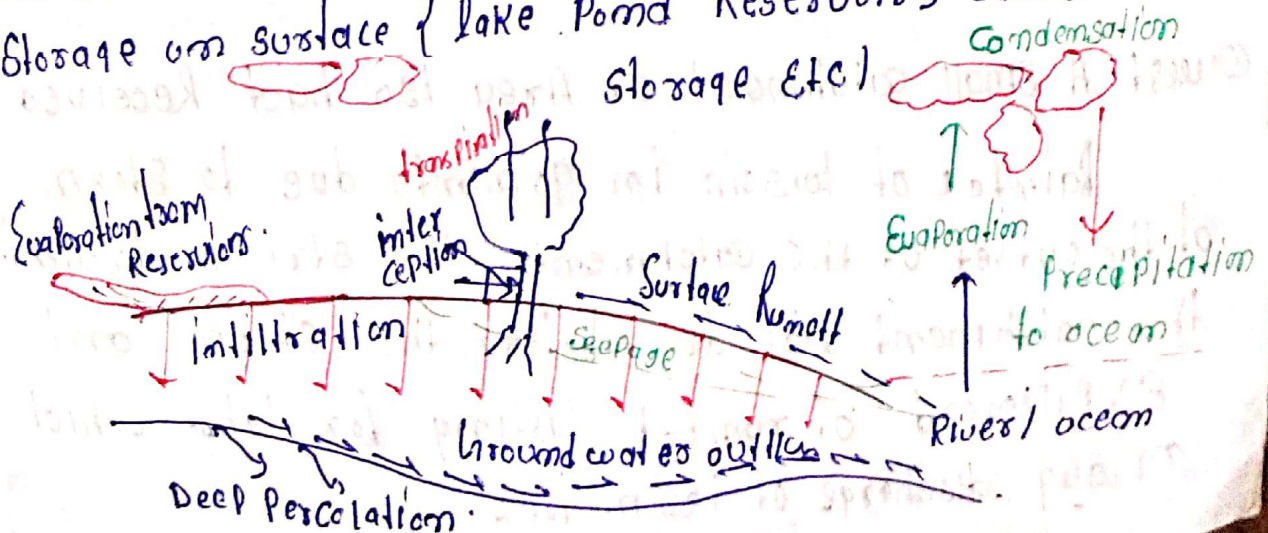 Storage on surface { lake Pond Reservoirs
Storage Etc)
Condensation
transpiration
Evaporation from
Reserviors.
inter
ception
Evaporation
Precapitation
to ocean
Surface Runoff
infiltration
Seepage
River/ ocean
Ground water outflow
Deep Percolation.